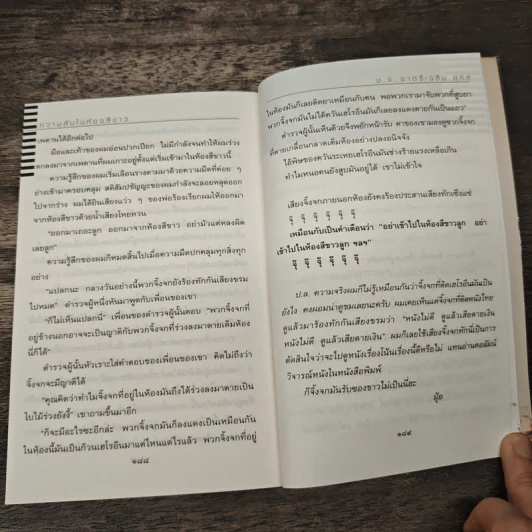 ความลับในห้องสีขาว
เพดานได้อีกต่อไป
มือและเท้าของผมอ่อนปวกเปียก ไม่มีกำลังจะทำให้ผมร่วง
ตกลงมาจากเพดานที่ผมเกาะอยู่ตั้งแต่เริ่มเข้ามาในห้องสีขาวนี้
ความรู้สึกของผมเริ่มเลือนรางตามมาด้วยความมืดที่ค่อย ๆ
ย่างเข้ามาครอบคลุม สติสัมปชัญญะของผมกำลังจะลอยหลุดออก
ไปจากร่าง ผมได้ยินเสียงแว่ว ๆ ของพ่อร้องเรียกผมให้ออกมา
จากห้องสีขาวด้วยน้ำเสียงโหยหวน
"ออกมาเถอะลูก ออกมาจากห้องสีขาว อย่ามัวแต่หลงผิด
เลยลูก"
ความรู้สึกของผมก็หมดสิ้นไปเมื่อความมืดปกคลุมทุกสิ่งทุก
อย่าง
"แปลกนะ กลางวันอย่างนี้พวกจิ้งจกยังร้องทักกันเสียงขรม
ไปหมด" ตำรวจผู้หนึ่งหันมาพูดกับเพื่อนของเขา
"ก็ไม่เห็นแปลกนี่" เพื่อนของตำรวจผู้นั้นตอบ "พวกจิ้งจกที่
อยู่ข้างนอกอาจจะเป็นญาติกับพวกจิ้งจกที่ร่วงลงมาตายเต็มห้อง
นี่ก็ได้"
ตำรวจผู้นั้นหัวเราะใส่คำตอบของเพื่อนของเขา คิดไม่ถึงว่า
จิ้งจกจะมีญาติได้
"คุณคิดว่าทำไมจิ้งจกที่อยู่ในห้องมันถึงได้ร่วงลงมาตายเป็น
ใบไม้ร่วงยังงี้" เขาถามขึ้นมาอีก
"ก็จะมีอะไรซะอีกล่ะ พวกจิ้งจกมันก็ลงแดงเป็นเหมือนกัน
ในห้องนี้มันเป็นก๊วนเฮโรอีนมาแต่ไหนแต่ไรแล้ว พวกจิ้งจกที่อยู่
๑๘๘
ม.จ. ชาตรีเฉลิม ยุคล
ในห้องมันก็เลยติดยาเหมือนกับคน พอพวกเรามาจับพวกที่สูบยา
พวกจิ้งจกมันไม่ได้ควันเฮโรอีนมันก็เลยลงแดงตายกันเป็นแถว"
ตำรวจผู้นั้นเห็นด้วยจึงพยักหน้ารับ ตาของเขามองดูซากจิ้งจก
ที่ตายเกลื่อนกลาดเต็มห้องอย่างปลงอนิจจัง
ไอ้พิษของควันระเหยเฮโรอีนมันช่างร้ายแรงเหลือเกิน
ทำไมหนอคนยังสูบมันอยู่ได้ เขาไม่เข้าใจ
เสียงจิ้งจกภายนอกห้องยังคงร้องประสานเสียงทักเซ็งแซ่
จุ๊ จุ๊ จุ๊ จุ๊ จุ๊ จุ๊
เหมือนกับเป็นคำเตือนว่า "อย่าเข้าไปในห้องสีขาวลูก อย่า
เข้าไปในห้องสีขาวลูก ฯลฯ"
จุ๊ จุ๊ จุ๊ จุ๊ จุ๊ จุ๊
ป.ล. ความจริงผมก็ไม่รู้เหมือนกันว่าจิ้งจกที่ติดเฮโรอีนมันเป็น
ยังไง คงผอมน่าดูชมเลยนะครับ ผมเคยเห็นแต่จิ้งจกที่ติดหนังไทย
ดูแล้วมาร้องทักกันเสียงขรมว่า "หนังไม่ดี ดูแล้วเสียดายเงิน
หนังไม่ดี ดูแล้วเสียดายเงิน" ผมก็เลยใช้เสียงจิ้งจกทักนี่เป็นการ
ตัดสินใจว่าจะไปดูหนังเรื่องโน้นเรื่องนี้ดีหรือไม่ แทนอ่านคอลัมน์
วิจารณ์หนังในหนังสือพิมพ์
ก็จิ้งจกมันรับซองขาวไม่เป็นนี่ฮะ
มุ้ย
๑๘๙